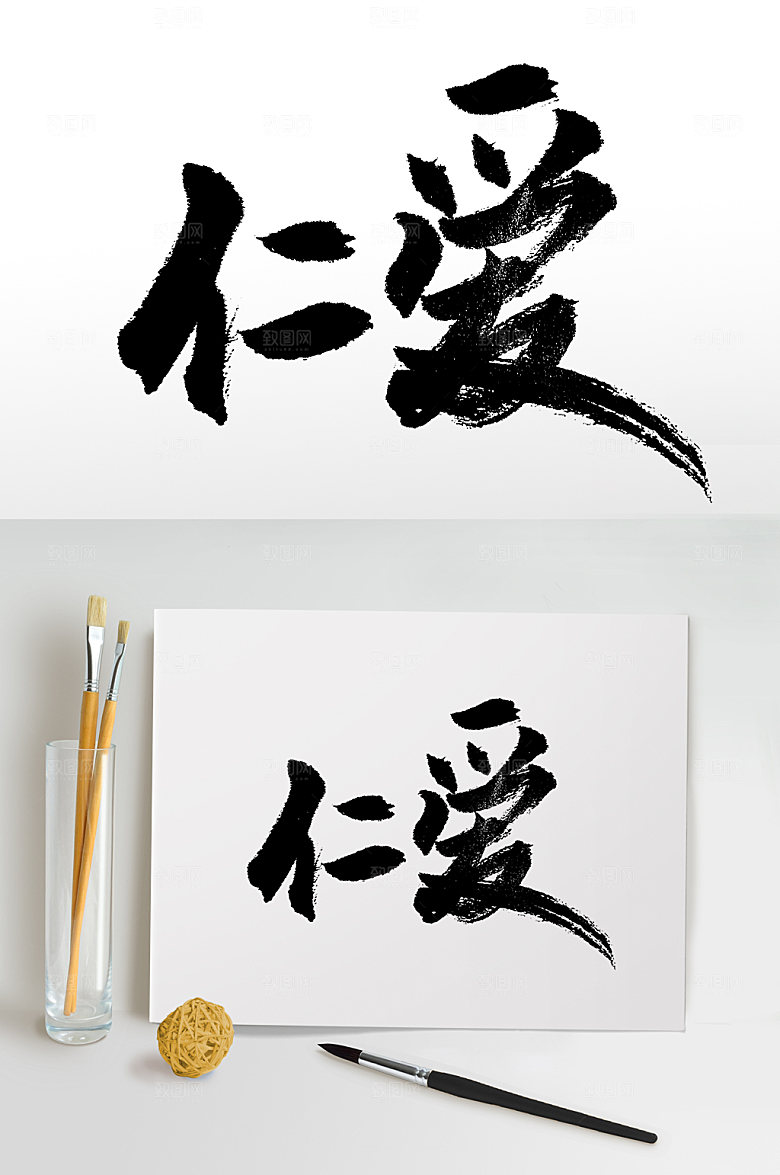 仁爱
仁爱